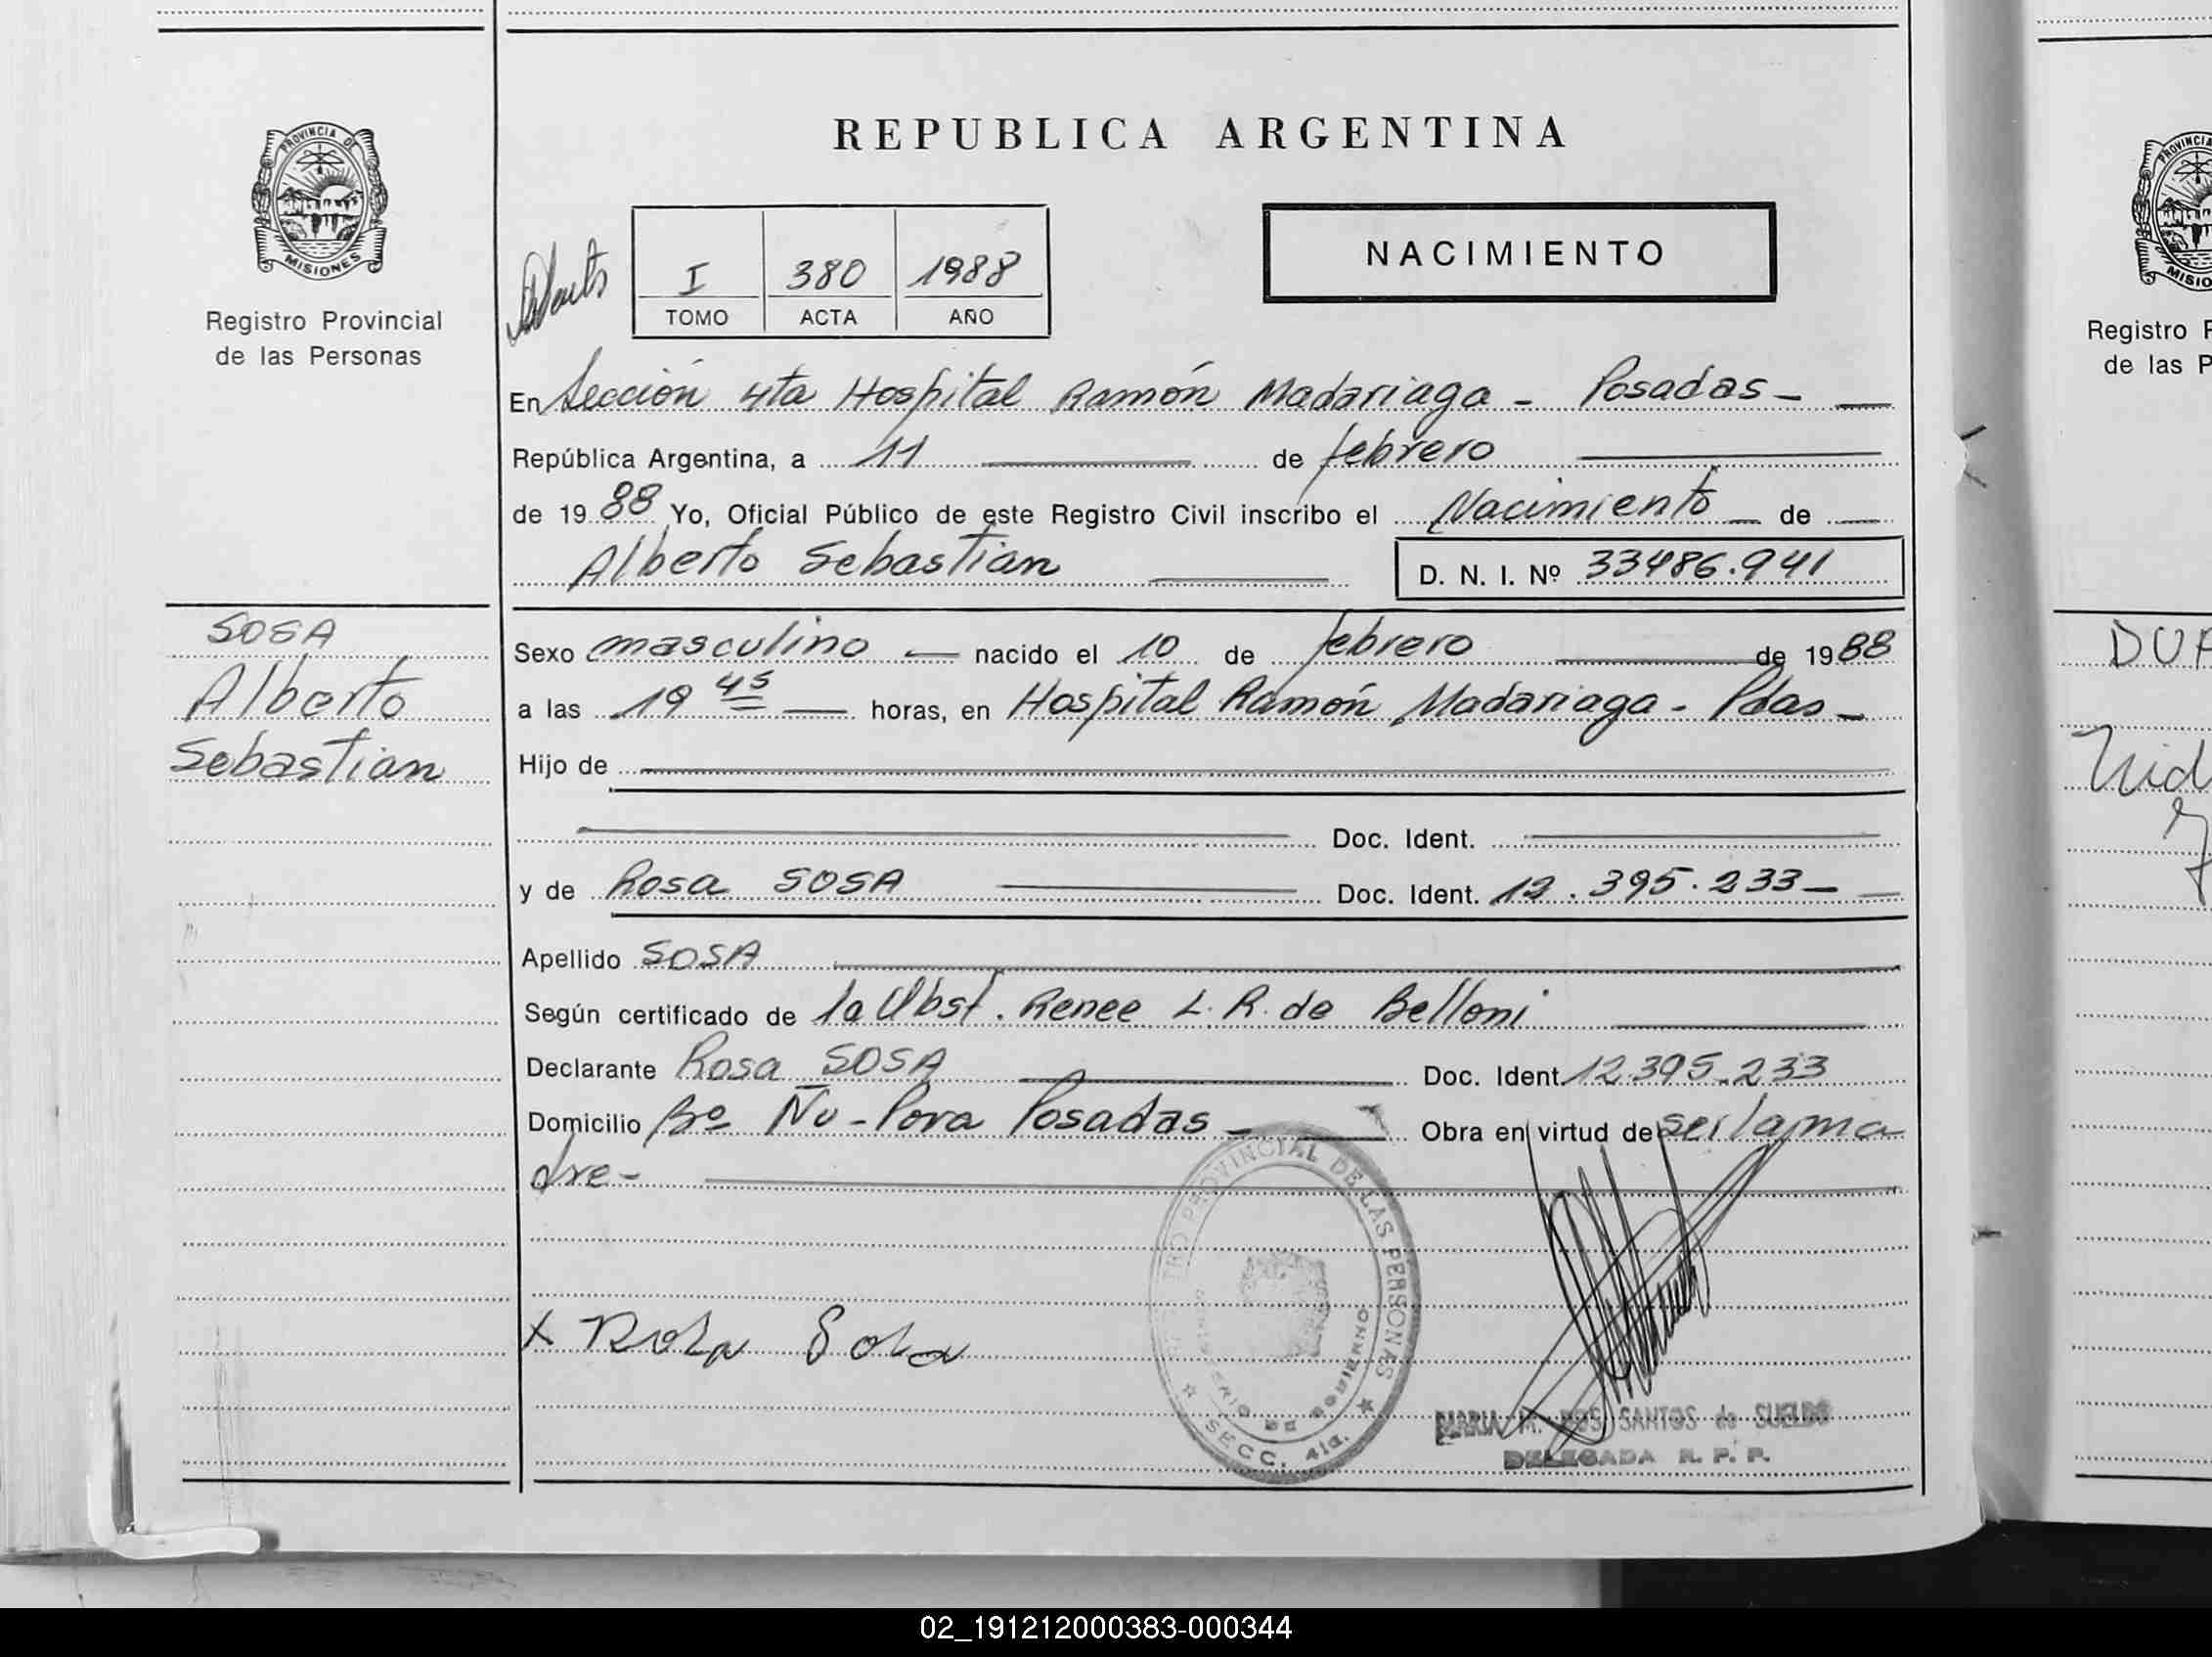 REPUBLICA ARGENTINA
PROVINCIA DE
MISIONES
Registro Provincial
de las Personas
I 380 1988
TOMO ACTA AÑO
NACIMIENTO
En Sección 4ta Hospital Ramón Madariaga - Posadas -
República Argentina, a 11 de febrero
de 1988 Yo, Oficial Público de este Registro Civil inscribo el Nacimiento de
Alberto Sebastian D. N. I. Nº 33486.941
SOSA
Alberto
Sebastian
Sexo masculino nacido el 10 de febrero de 1988
a las 19 45 horas, en Hospital Ramón Madariaga - Pdas -
Hijo de
Doc. Ident.
y de Rosa SOSA Doc. Ident. 12.395.233
Apellido SOSA
Según certificado de la Obst. Renee L. R. de Belloni
Declarante Rosa SOSA Doc. Ident. 12395.233
Domicilio Bº Ñu-Pora Posadas - Obra en virtud de ser la ma
dre -
REGISTRO PROVINCIAL DE LAS PERSONAS
MINISTERIO DE GOBIERNO
SECC. 4ta.
X Rosa Sosa
MARIA M. DOS SANTOS de SUELDO
DELEGADA R. P. P.
PROVINCIA
MISIO
Registro P
de las P
DUA
02_191212000383-000344